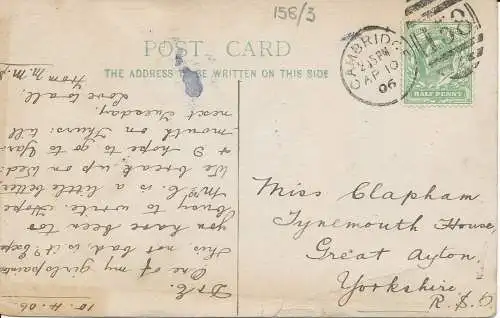 156/3
POST CARD
THE ADDRESS TO BE WRITTEN ON THIS SIDE
CAMBRIDGE
AP 10
06
158
HALF PENNY
Miss Clapham
Tynemouth House,
Great Ayton,
Yorkshire
R.S.O
10.4.06
Dr E.
One of my girls painted
this, not bad is it? Expect
you have been too
busy to write. Hope
Mrs C. is a little better
We break up on Wed:
& I hope to go to Yar-
mouth on Thurs: till
next Tuesday,
Love to all,
from M.M.